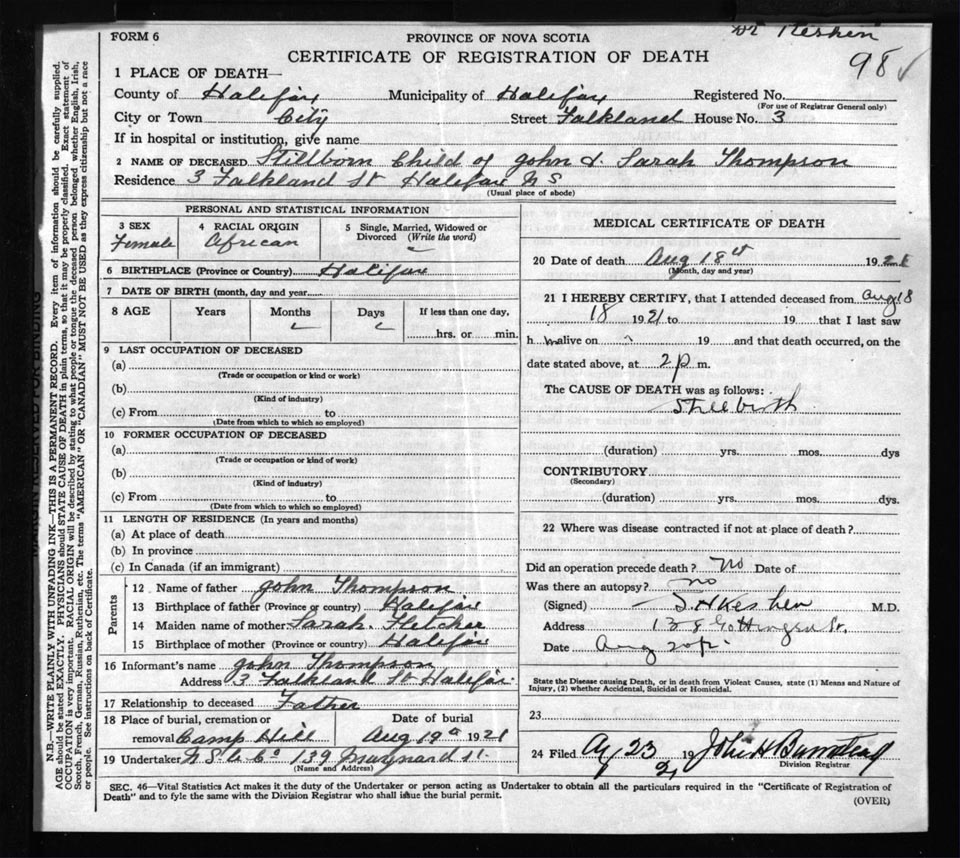 Dr Keshen
98 ✓
FORM 6
PROVINCE OF NOVA SCOTIA
CERTIFICATE OF REGISTRATION OF DEATH
1 PLACE OF DEATH—
County of Halifax Municipality of Halifax Registered No.
(For use of Registrar General only)
City or Town City Street Falkland House No. 3
If in hospital or institution, give name
2 NAME OF DECEASED Stillborn Child of John & Sarah Thompson
Residence 3 Falkland St Halifax N S
(Usual place of abode)
PERSONAL AND STATISTICAL INFORMATION
3 SEX
Female
4 RACIAL ORIGIN
African
5 Single, Married, Widowed or Divorced (Write the word)
6 BIRTHPLACE (Province or Country) Halifax
7 DATE OF BIRTH (month, day and year
8 AGE Years Months Days If less than one day,
hrs. or min.
9 LAST OCCUPATION OF DECEASED
(a)
(Trade or occupation or kind or work)
(b)
(Kind of industry)
(c) From to
(Date from which to which so employed)
10 FORMER OCCUPATION OF DECEASED
(a)
(Trade or occupation or kind of work)
(b)
(Kind of industry)
(c) From to
(Date from which to which so employed)
11 LENGTH OF RESIDENCE (In years and months)
(a) At place of death
(b) In province
(c) In Canada (if an immigrant)
Parents
12 Name of father John Thompson
13 Birthplace of father (Province or country) Halifax
14 Maiden name of mother Sarah Fletcher
15 Birthplace of mother (Province or country) Halifax
16 Informant's name John Thompson
Address 3 Falkland St Halifax
17 Relationship to deceased Father
18 Place of burial, cremation or Date of burial
removal Camp Hill Aug 19th 1921
19 Undertaker N S U Co 139 Maynard St.
(Name and Address)
MEDICAL CERTIFICATE OF DEATH
20 Date of death Aug 18th 1921
(Month, day and year)
21 I HEREBY CERTIFY, that I attended deceased from Aug 18
18 1921 to 19 that I last saw
h alive on 19 and that death occurred, on the
date stated above, at 2 p m.
The CAUSE OF DEATH was as follows:
Stillbirth
(duration) yrs. mos. dys
CONTRIBUTORY
(Secondary)
(duration) yrs. mos. dys.
22 Where was disease contracted if not at place of death?
Did an operation precede death? No Date of
Was there an autopsy? no
(Signed) S H Keshen M.D.
Address 138 Gottingen St.
Date Aug 20
State the Disease causing Death, or in death from Violent Causes, state (1) Means and Nature of
Injury, (2) whether Accidental, Suicidal or Homicidal.
23
24 Filed Ag 23 1921 John H Barnstead
Division Registrar
SEC. 46—Vital Statistics Act makes it the duty of the Undertaker or person acting as Undertaker to obtain all the particulars required in the "Certificate of Registration of
Death" and to fyle the same with the Division Registrar who shall issue the burial permit.
(OVER)
MARGIN RESERVED FOR BINDING
N.B.—WRITE PLAINLY WITH UNFADING INK—THIS IS A PERMANENT RECORD. Every item of information should be carefully supplied.
AGE should be stated EXACTLY. PHYSICIANS should STATE CAUSE OF DEATH in plain terms, so that it may be properly classified. Exact statement of
OCCUPATION is very important. RACIAL ORIGIN will be described by stating to what people or tongue the deceased person belonged whether English, Irish,
Scotch, French, German, Russian, Ruthenian, etc. The terms "AMERICAN" OR "CANADIAN" MUST NOT BE USED as they express citizenship but not a race
or people. See instructions on back of Certificate.